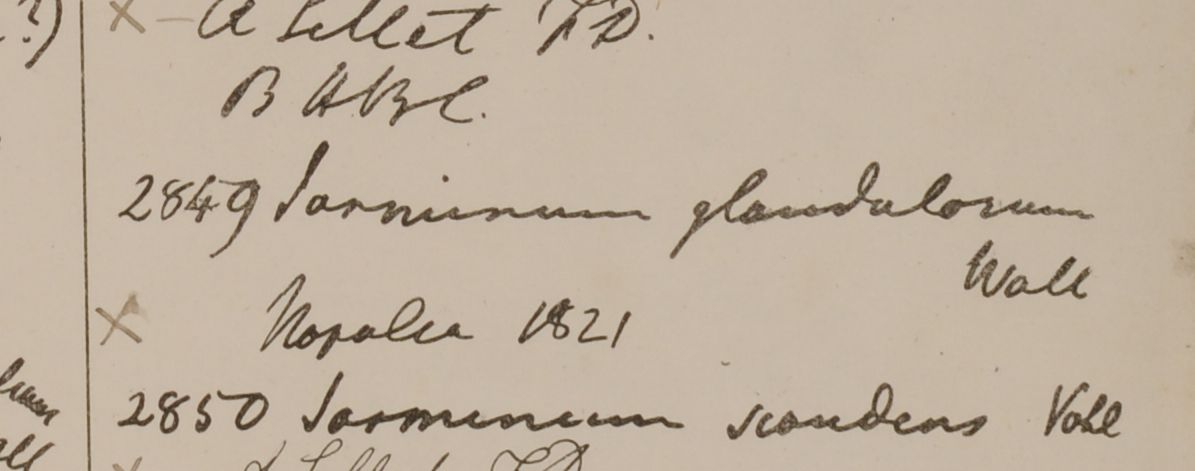 ?)
× — A Sillet F.D.
B HBC.
2849 Jasminum glandulosum
Wall
× Nopalia 1821
2850 Jasminum scandens Vahl
× A Sillet F.D.